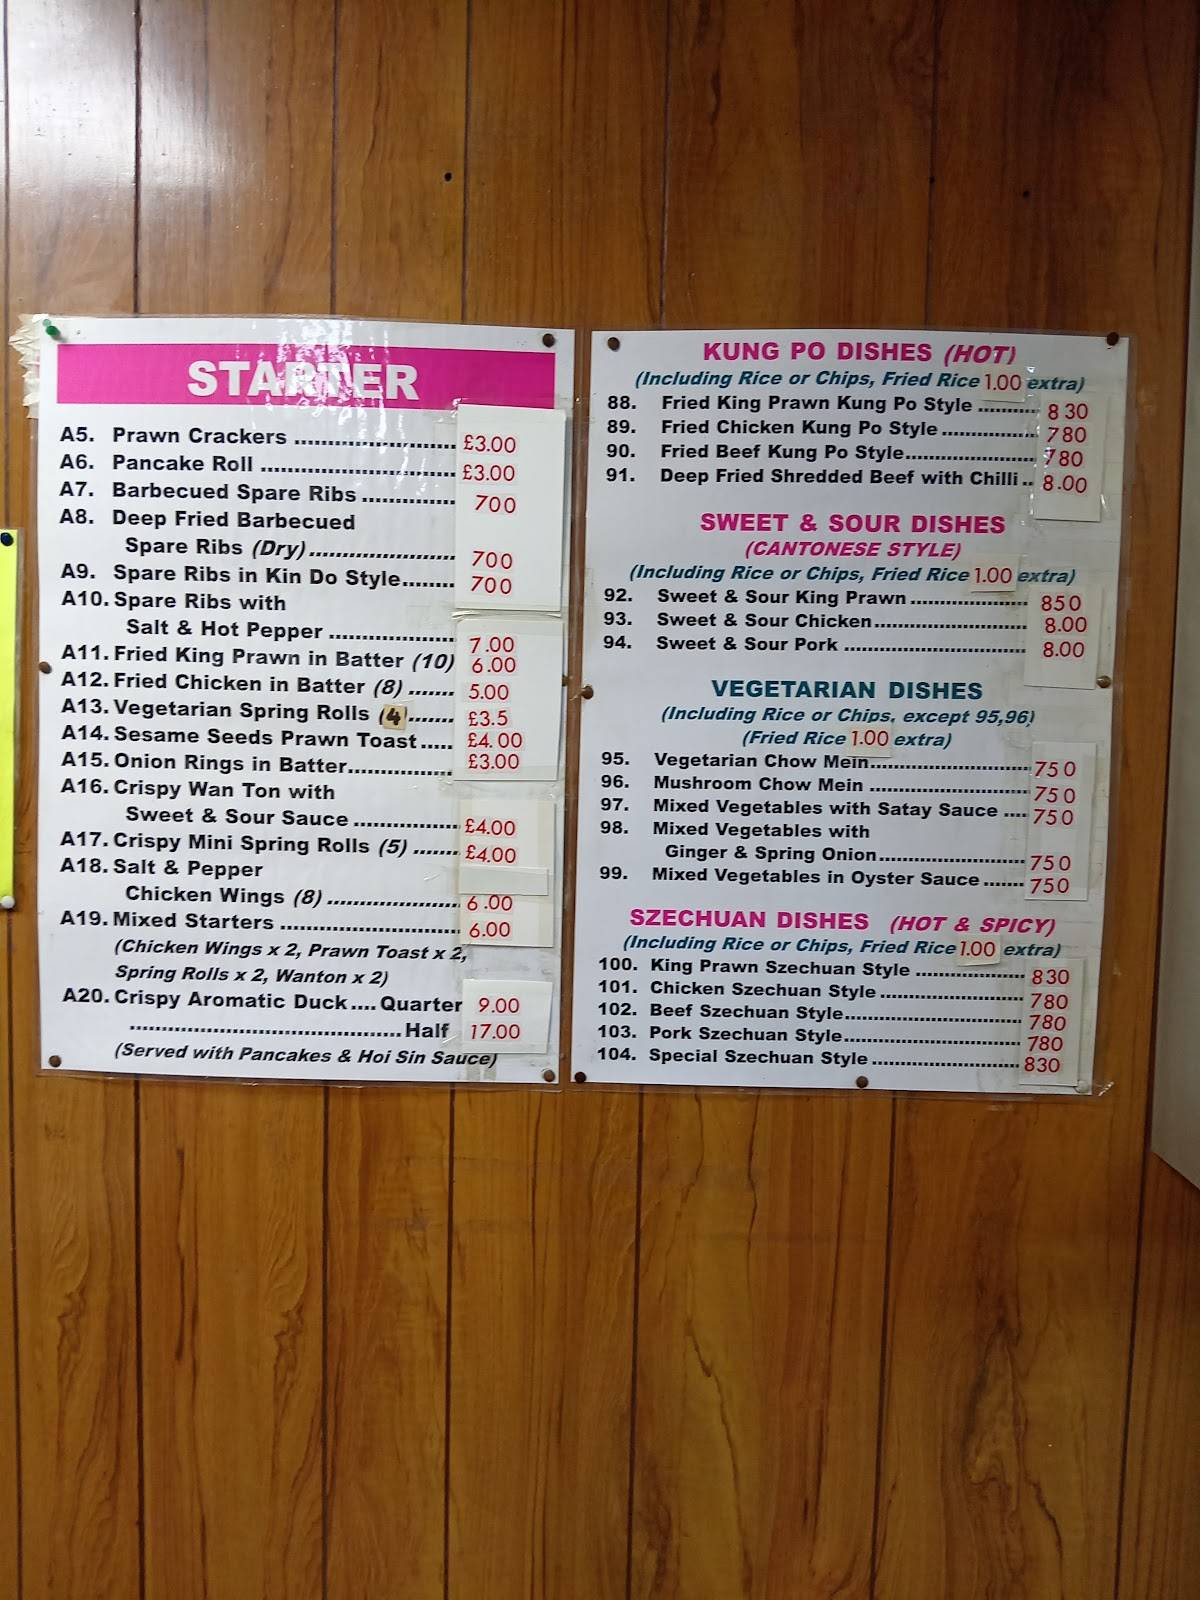 STARTER
A5. Prawn Crackers ........................ £3.00
A6. Pancake Roll ............................. £3.00
A7. Barbecued Spare Ribs .............. 700
A8. Deep Fried Barbecued
Spare Ribs (Dry)...................... 700
A9. Spare Ribs in Kin Do Style........ 700
A10. Spare Ribs with
Salt & Hot Pepper ................... 7.00
A11. Fried King Prawn in Batter (10) 6.00
A12. Fried Chicken in Batter (8) ....... 5.00
A13. Vegetarian Spring Rolls (4)....... £3.5
A14. Sesame Seeds Prawn Toast..... £4.00
A15. Onion Rings in Batter................ £3.00
A16. Crispy Wan Ton with
Sweet & Sour Sauce ................ £4.00
A17. Crispy Mini Spring Rolls (5) ....... £4.00
A18. Salt & Pepper
Chicken Wings (8) .................... 6.00
A19. Mixed Starters ........................... 6.00
(Chicken Wings x 2, Prawn Toast x 2,
Spring Rolls x 2, Wanton x 2)
A20. Crispy Aromatic Duck.... Quarter 9.00
........................................ Half 17.00
(Served with Pancakes & Hoi Sin Sauce)
KUNG PO DISHES (HOT)
(Including Rice or Chips, Fried Rice 1.00 extra)
88. Fried King Prawn Kung Po Style .......... 8 30
89. Fried Chicken Kung Po Style................ 780
90. Fried Beef Kung Po Style...................... 780
91. Deep Fried Shredded Beef with Chilli .. 8.00
SWEET & SOUR DISHES
(CANTONESE STYLE)
(Including Rice or Chips, Fried Rice 1.00 extra)
92. Sweet & Sour King Prawn ................... 850
93. Sweet & Sour Chicken......................... 8.00
94. Sweet & Sour Pork .............................. 8.00
VEGETARIAN DISHES
(Including Rice or Chips, except 95,96)
(Fried Rice 1.00 extra)
95. Vegetarian Chow Mein.......................... 750
96. Mushroom Chow Mein .......................... 750
97. Mixed Vegetables with Satay Sauce .... 750
98. Mixed Vegetables with
Ginger & Spring Onion........................ 750
99. Mixed Vegetables in Oyster Sauce ....... 750
SZECHUAN DISHES (HOT & SPICY)
(Including Rice or Chips, Fried Rice 1.00 extra)
100. King Prawn Szechuan Style ................. 830
101. Chicken Szechuan Style ....................... 780
102. Beef Szechuan Style............................. 780
103. Pork Szechuan Style............................. 780
104. Special Szechuan Style ........................ 830